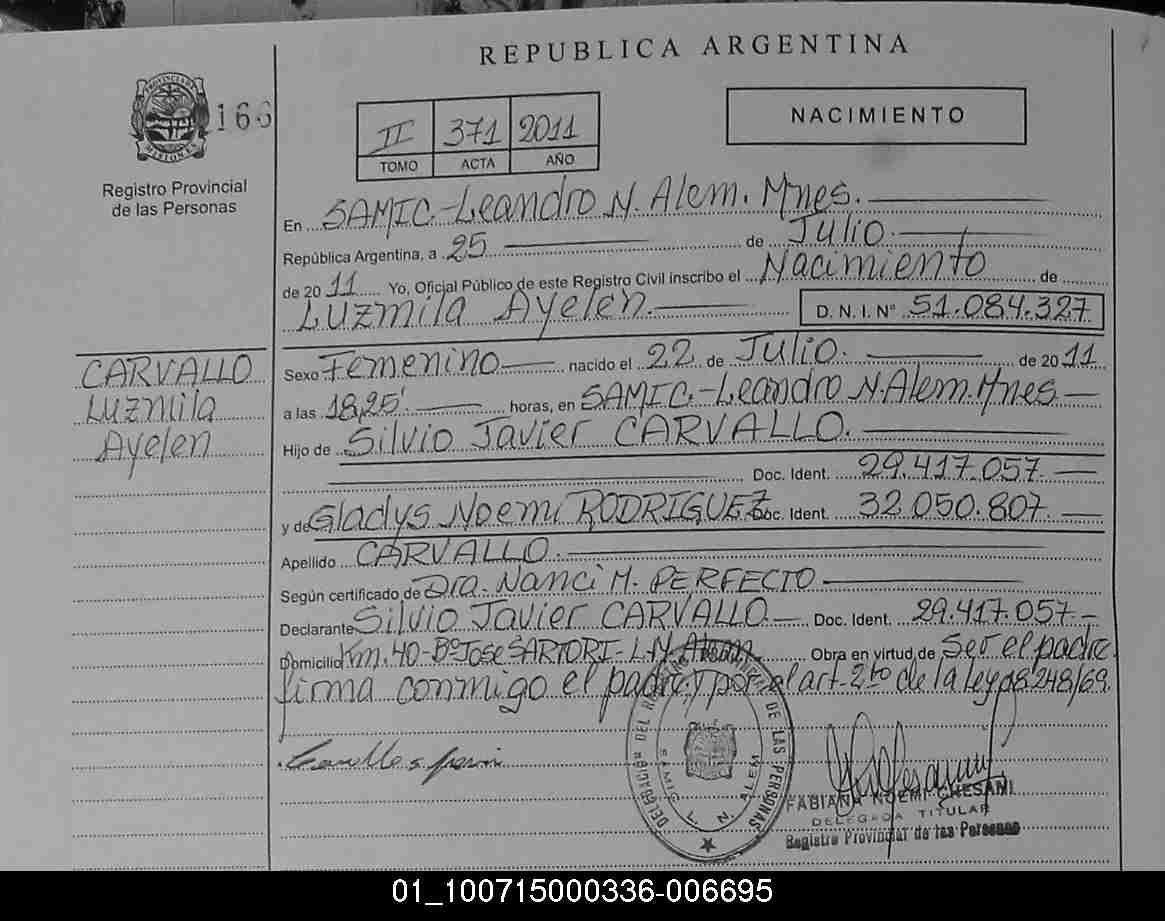 REPUBLICA ARGENTINA
PROVINCIA DE MISIONES
166
Registro Provincial
de las Personas
II 371 2011
TOMO ACTA AÑO
NACIMIENTO
En SAMIC.-Leandro N. Alem. Mnes.
República Argentina, a 25 de Julio
de 2011 Yo, Oficial Público de este Registro Civil inscribo el Nacimiento de
Luzmila Ayelen. D. N. I. Nº 51.084.327
CARVALLO
Luzmila
Ayelen
Sexo Femenino nacido el 22 de Julio. de 2011
a las 18,25' horas, en SAMIC.-Leandro N. Alem. Mnes
Hijo de Silvio Javier CARVALLO.
Doc. Ident. 29.417.057.
y de Gladys Noemi RODRIGUEZ Doc. Ident. 32.050.807.
Apellido CARVALLO.
Según certificado de Dra. Nanci M. PERFECTO
Declarante Silvio Javier CARVALLO Doc. Ident. 29.417.057-
Domicilio Km. 40-Bº José SARTORI-L.N. Alem Obra en virtud de ser el padre
firma conmigo el padre y por el art-2to de la Ley 18.248/69.
DELEGACION DEL REGISTRO PROVINCIAL DE LAS PERSONAS
SAMIC L. N. ALEM
FABIANA NOEMI CHESANI
DELEGADA TITULAR
Registro Provincial de las Personas
01_100715000336-006695